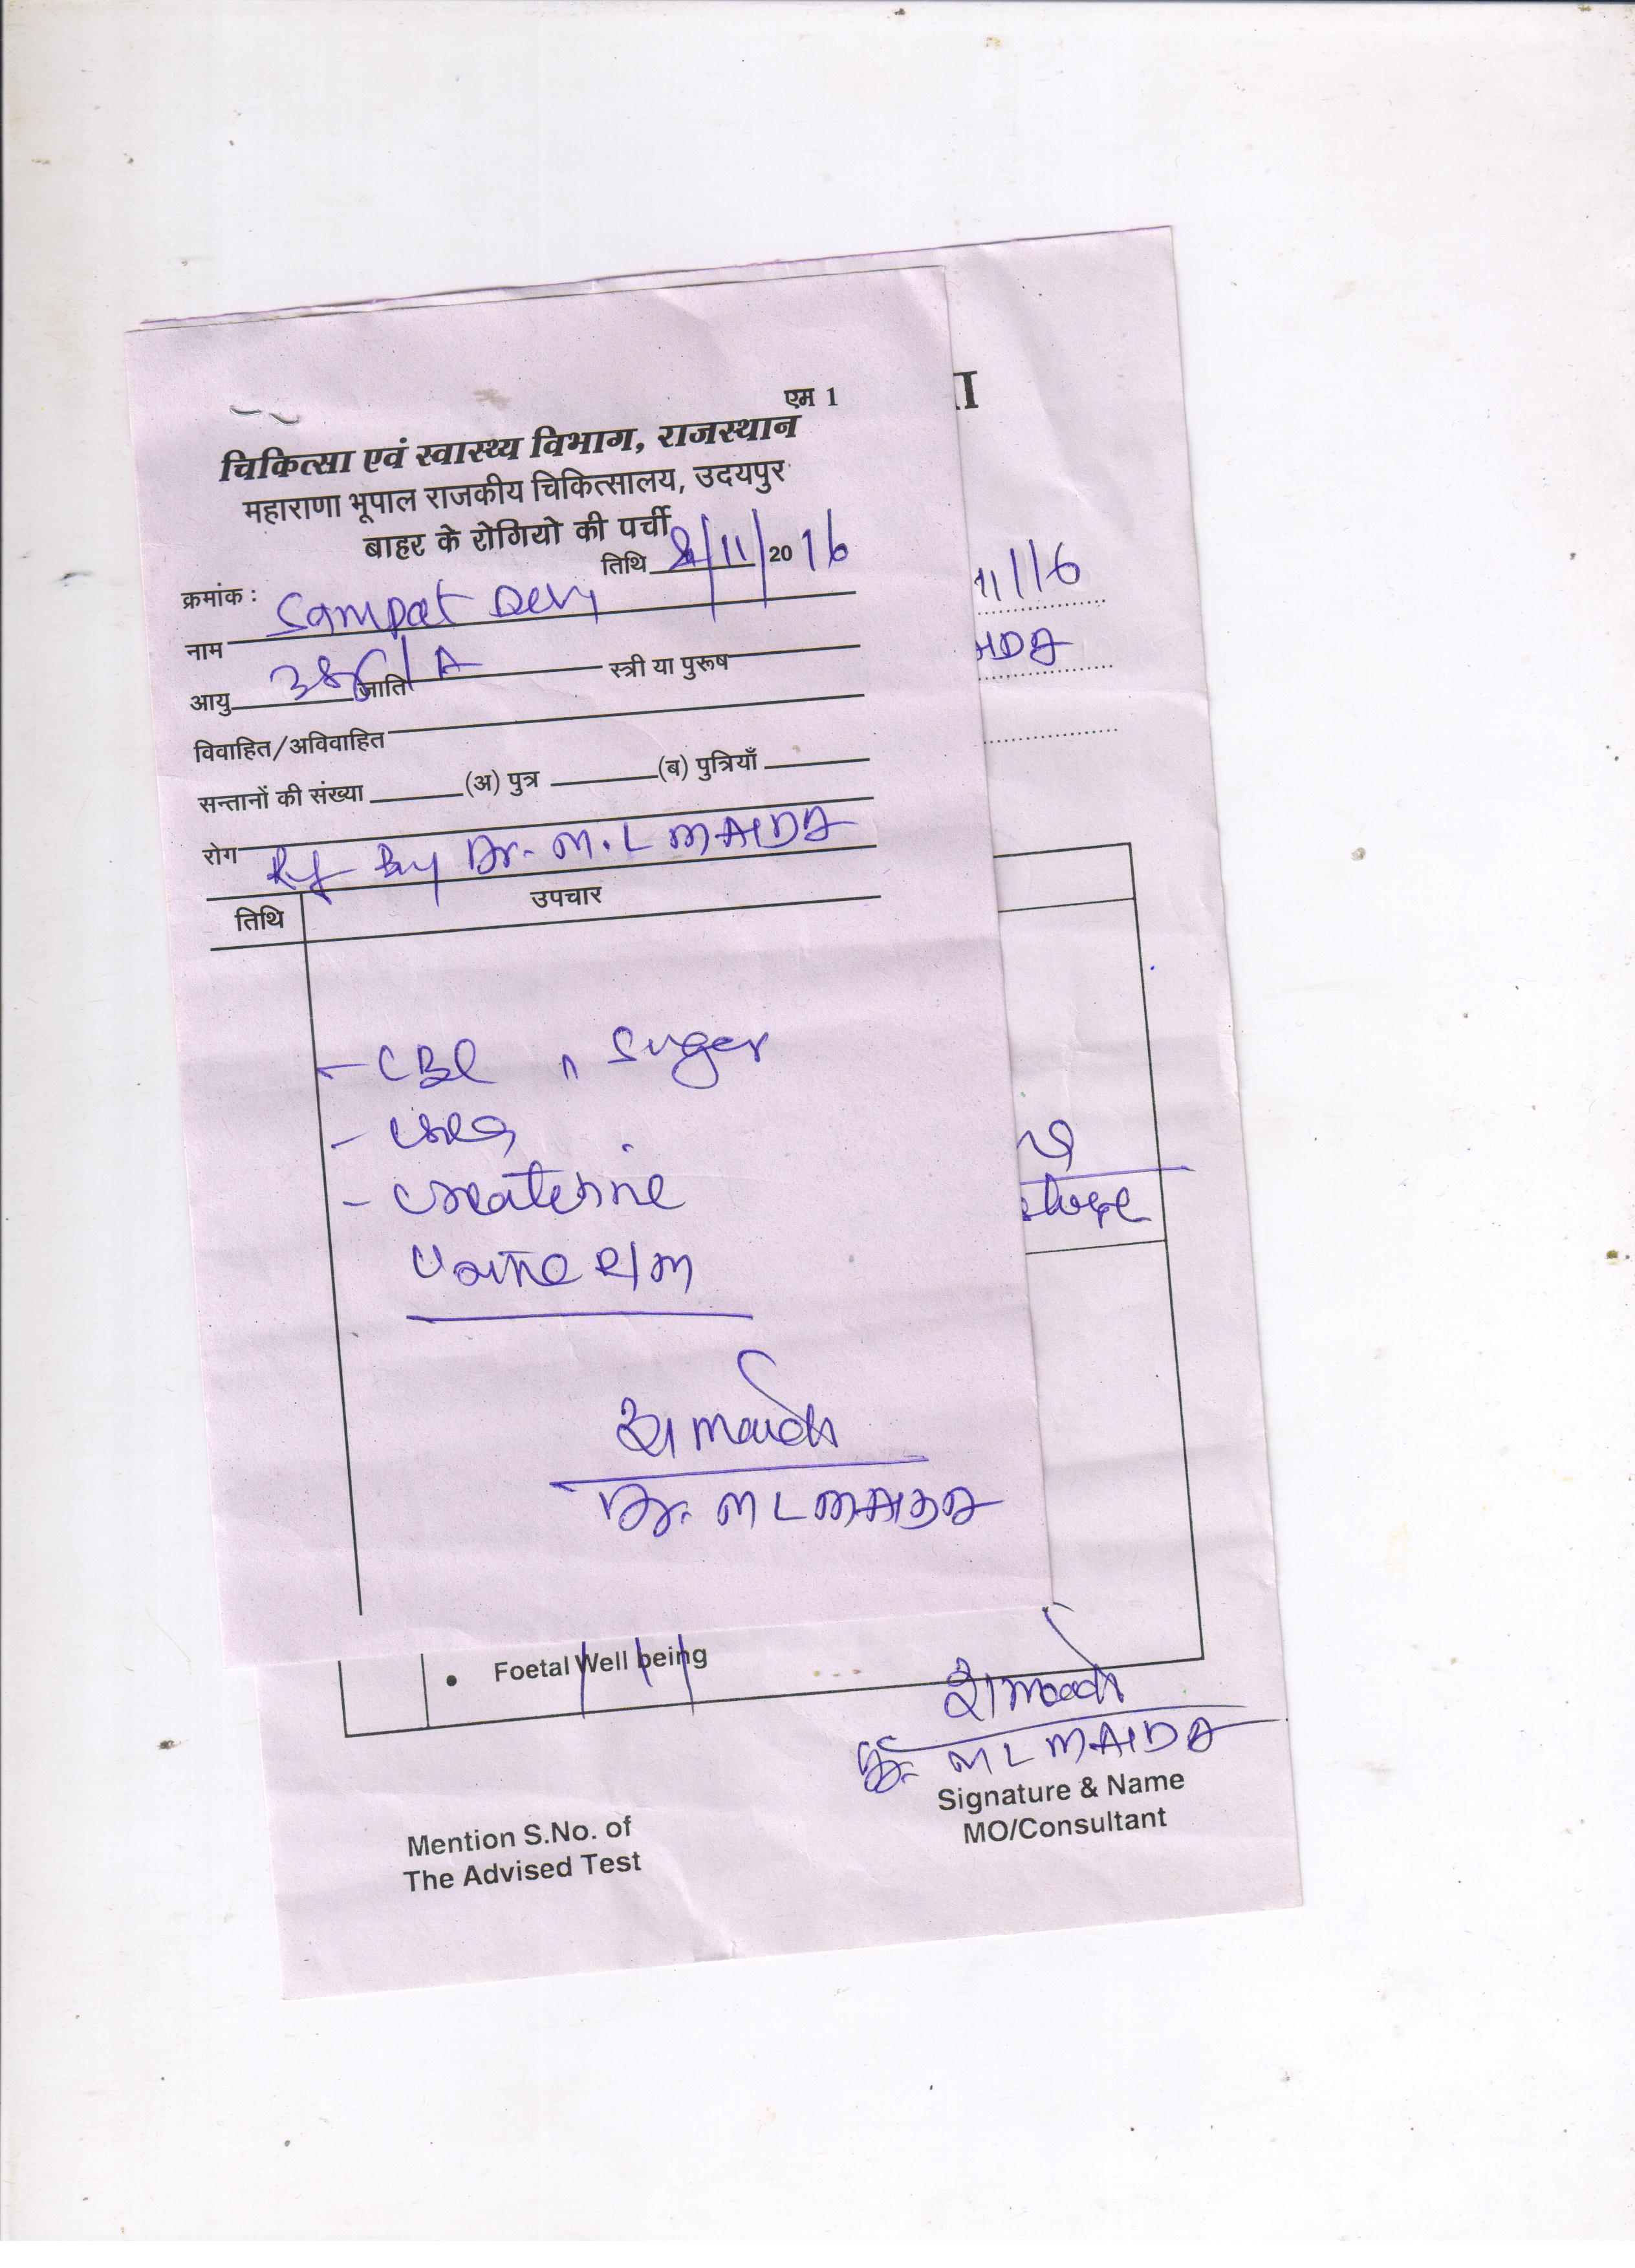 एम 1
चिकित्सा एवं स्वास्थ्य विभाग, राजस्थान
महाराणा भूपाल राजकीय चिकित्सालय, उदयपुर
बाहर के रोगियो की पर्ची
तिथि /11/2016
क्रमांक :
नाम Sampat Devi
आयु जाति स्त्री या पुरूष
विवाहित/अविवाहित
सन्तानों की संख्या (अ) पुत्र (ब) पुत्रियाँ
रोग Ref By Dr. M. L MAIDA
तिथि उपचार
- CBC Suger
- Urea
- Creatinine
Urine R/M
Dr. M L MAIDA
11/16
• Foetal Well being
Dr. M L MAIDA
Signature & Name
MO/Consultant
Mention S.No. of
The Advised Test